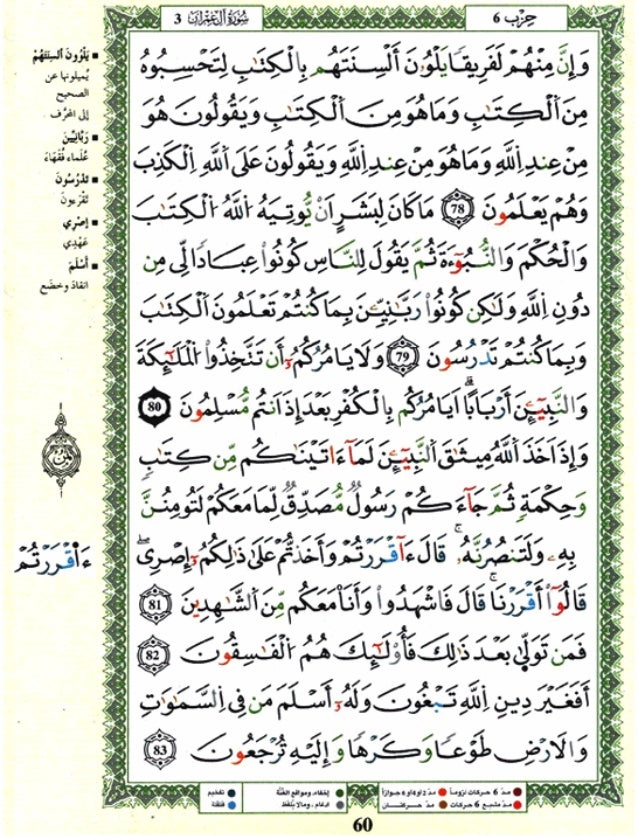 حِزْب 6
سُورَةُ آلِ عِمْرَانَ 3
وَإِنَّ مِنْهُمْ لَفَرِيقاً يَلْوُۥنَ أَلْسِنَتَهُم بِالْكِتَٰبِ لِتَحْسِبُوهُ
مِنَ اَلْكِتَٰبِ وَمَا هُوَ مِنَ اَلْكِتَٰبِ وَيَقُولُونَ هُوَ
مِنْ عِندِ اِللَّهِ وَمَا هُوَ مِنْ عِندِ اِللَّهِ وَيَقُولُونَ عَلَى اَللَّهِ اِلْكَذِبَ
وَهُمْ يَعْلَمُونَ 78 مَا كَانَ لِبَشَرٍ اَنْ يُّوتِيَهُ اُللَّهُ اُلْكِتَٰبَ
وَالْحُكْمَ وَالنُّبُوٓءَةَ ثُمَّ يَقُولَ لِلنَّاسِ كُونُواْ عِبَاداً لِّى مِن
دُونِ اِللَّهِ وَلَٰكِن كُونُواْ رَبَّٰنِيِّـۧنَ بِمَا كُنتُمْ تَعْلَمُونَ اَلْكِتَٰبَ
وَبِمَا كُنتُمْ تَدْرُسُونَ 79 وَلَا يَامُرُكُمُۥٓ أَن تَتَّخِذُواْ اُلْمَلَٰٓئِكَةَ
وَالنَّبِيٓـِٕۧنَ أَرْبَاباًۖ اَيَامُرُكُم بِالْكُفْرِ بَعْدَ إِذَ اَنتُم مُّسْلِمُونَ 80
وَإِذَ اَخَذَ اَللَّهُ مِيثَٰقَ اَلنَّبِيٓـِٕۧنَ لَمَآ ءَاتَيْنَٰكُم مِّن كِتَٰبٍ
وَحِكْمَةٍ ثُمَّ جَآءَكُمْ رَسُولٌ مُّصَدِّقٌ لِّمَا مَعَكُمْ لَتُومِنُنَّ
بِهِۦ وَلَتَنصُرُنَّهُۥۖ قَالَ ءَآقْرَرْتُمْ وَأَخَذتُّمْ عَلَىٰ ذَٰلِكُمُۥٓ إِصْرِىۖ
قَالُوٓاْ أَقْرَرْنَاۖ قَالَ فَاشْهَدُواْ وَأَنَا مَعَكُم مِّنَ اَلشَّٰهِدِينَ 81
فَمَن تَوَلَّىٰ بَعْدَ ذَٰلِكَ فَأُوْلَٰٓئِكَ هُمُ اُلْفَٰسِقُونَ 82
أَفَغَيْرَ دِينِ اِللَّهِ تَبْغُونَ وَلَهُۥٓ أَسْلَمَ مَن فِى اِلسَّمَٰوَٰتِ
وَالَارْضِ طَوْعاً وَكَرْهاً وَإِلَيْهِ تُرْجَعُونَ 83
■ يَلْوُۥنَ أَلْسِنَتَهُمْ
يُميلونها عن
الصحيح
إلى المحرّف
■ رَبَّانِيِّينَ
عُلَماء فُقَهَاءَ
■ تَدْرُسُونَ
تَقْرَءونَ
■ إِصْرِي
عَهْدِي
■ أَسْلَمَ
انقادَ وخضَع
ءَآقْرَرْتُمْ
● مدّ 6 حركات لزوماً ● مدّ 2 أو 4 أو 6 جوازاً
● مدّ مشبع 6 حركات ● مدّ حركتان
● إخفاء، ومواقع الغُنَّة
● ادغام، وما لا يُلفَظ
● تفخيم
● قلقلة
60